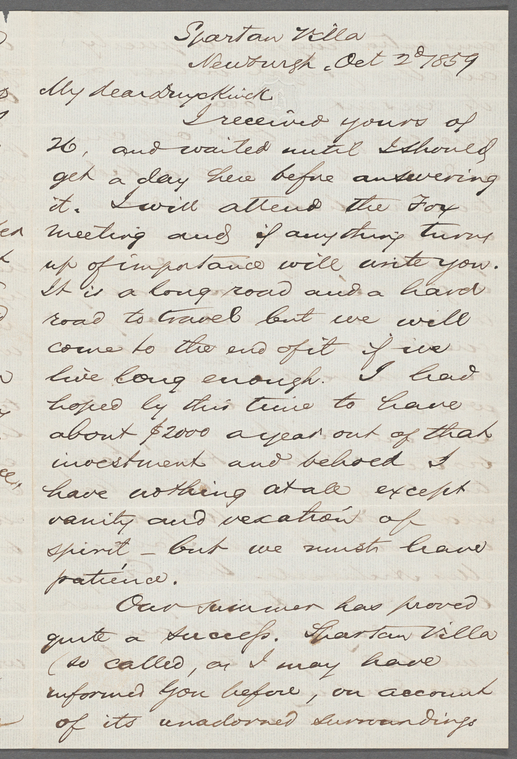 Spartan Villa
Newburgh, Oct 2d 1859
My dear
I received yours of
26, and waited until I should
get a day here before answering
it. I will attend the Fox
meeting and if anything turns
up of importance will write you.
It is a long road and a hard
road to travel but we will
come to the end of it if we
live long enough. I had
hoped by this time to have
about $2000 a year out of that
investment and behold I
have nothing at all except
vanity and vexation of
spirit – but we must have
patience.
Our summer has proved
quite a success. Spartan Villa
(so called, as I may have
informed you before, on account
of its unadorned surroundings